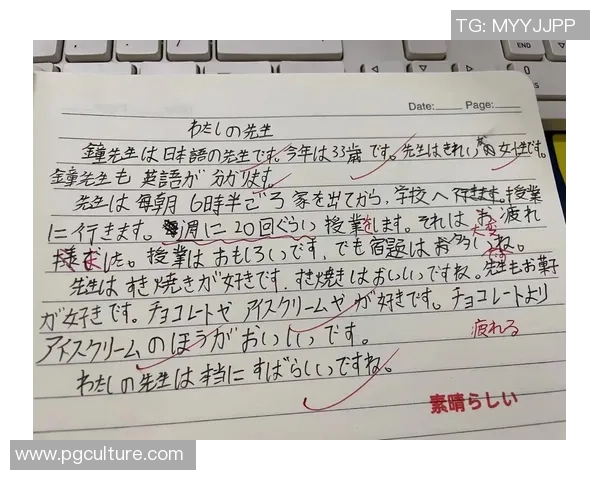 TG: MYYJJPP
Date: Page:
わたしの先生
鐘先生は日本語の先生です。今年は33歳です。先生はきれい 女性です。
鐘先生も 英語が 分かります。
先生は 毎朝 6時半ごろ 家を出てから、学校へ 行きます。授業
に 行きます。 週に 20回ぐらい 授業をします。それは お疲れ
大変
様でした。授業は おもしろいです、でも 宿題は お多いね。
です
先生は すき焼きが好きです。すき焼きはおいしいですね。先生もお菓子
が好きです。チョコレートや アイスクリームや が 好きです。チョコレートより
アイスクリームのほうが おいしいです。
疲れる
わたしの先生は 本当に すばらしいですね。
素晴らしい
www.pgculture.com